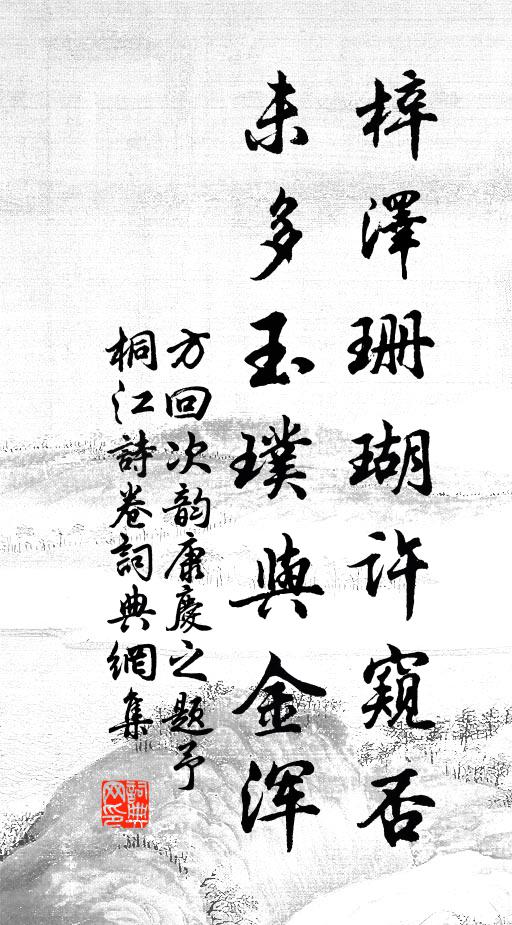 梓澤珊瑚許窺否
未多玉璞與金浑
方回次韵康慶之题予
桐江詩卷詞典網集
詞典网印